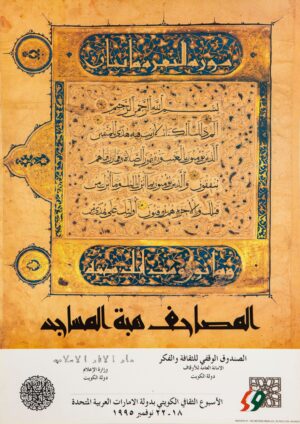 سورة البقرة مائتان
بسم الله الرحمن الرحيم
الم ذلك الكتاب لا ريب فيه هدى للمتقين
الذين يؤمنون بالغيب ويقيمون الصلوة ومما رزقناهم
ينفقون والذين يؤمنون بما أنزل إليك وما أنزل من
قبلك وبالآخرة هم يوقنون أولئك على هدى من
المصاحف هبة المساجد
الصندوق الوقفي للثقافة والفكر
الامانة العامة للأوقاف
دولة الكويت
دار الآثار الإسلامية
وزارة الاعلام
دولة الكويت
الأسبوع الثقافي الكويتي بدولة الامارات العربية المتحدة
١٨-٢٢ نوفمبر ١٩٩٥